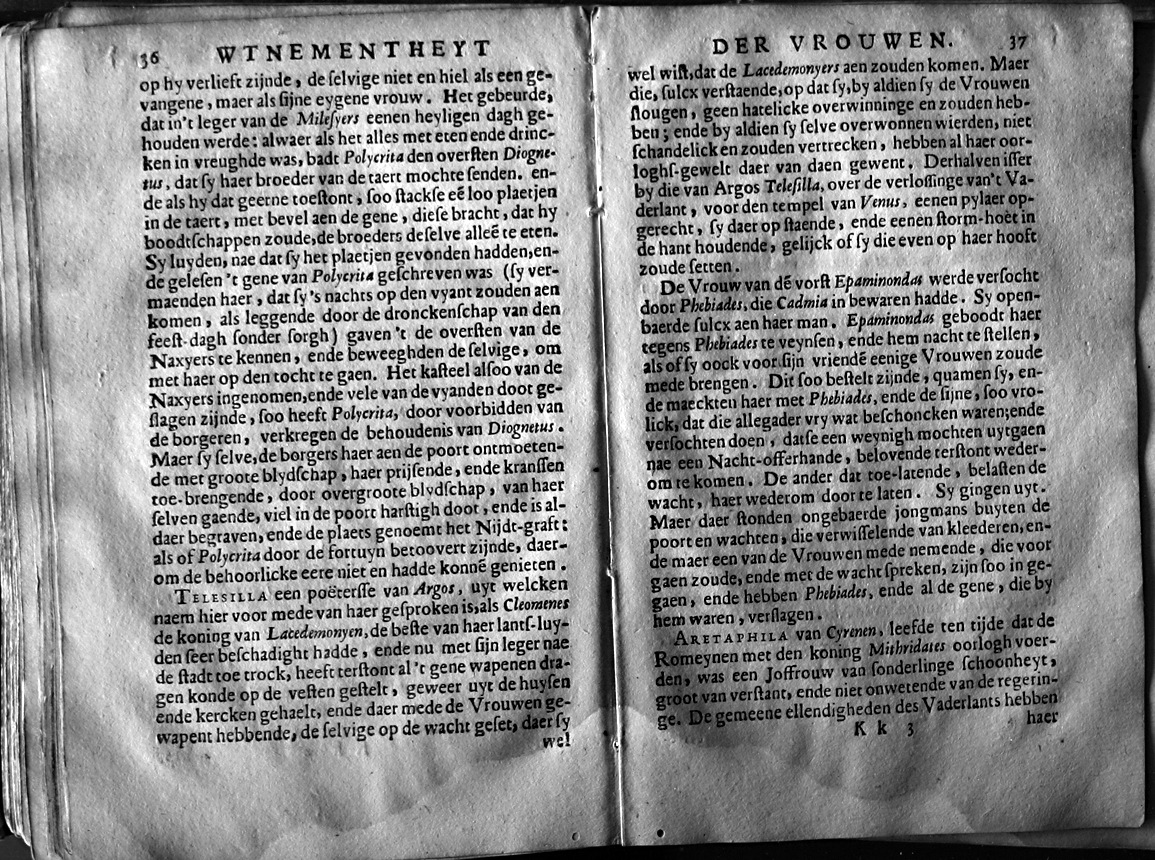 36 WTNEMENTHEYT
op hy verlieft zijnde, de ſelvige niet en hiel als een ge-
vangene, maer als ſijne eygene vrouw. Het gebeurde,
dat in't leger van de Mileſyers eenen heyligen dagh ge-
houden werde: alwaer als het alles met eten ende drinc-
ken in vreughde was, badt Polycrita den overſten Diogne-
tus, dat ſy haer broeder van de taert mochte ſenden. en-
de als hy dat geerne toeſtont, ſoo ſtackſe eē loo plaetjen
in de taert, met bevel aen de gene, dieſe bracht, dat hy
boodtſchappen zoude, de broeders deſelve alleē te eten.
Sy luyden, nae dat ſy het plaetjen gevonden hadden, en-
de geleſen 't gene van Polycrita geſchreven was (ſy ver-
maenden haer, dat ſy 's nachts op den vyant zouden aen
komen, als leggende door de dronckenſchap van den
feeſt-dagh ſonder ſorgh) gaven't de overſten van de
Naxyers te kennen, ende beweeghden de ſelvige, om
met haer op den tocht te gaen. Het kaſteel alſoo van de
Naxyers ingenomen, ende vele van de vyanden doot ge-
ſlagen zijnde, ſoo heeft Polycrita, door voorbidden van
de borgeren, verkregen de behoudenis van Diognetus.
Maer ſy ſelve, de borgers haer aen de poort ontmoeten-
de met groote blydſchap, haer prijſende, ende kranſſen
toe-brengende, door overgroote blydſchap, van haer
ſelven gaende, viel in de poort harſtigh doot, ende is al-
daer begraven, ende de plaets genoemt het Nijdt-graft:
als of Polycrita door de fortuyn betoovert zijnde, daer-
om de behoorlicke eere niet en hadde konnē genieten.
TELESILLA een poëterſſe van Argos, uyt welcken
naem hier voor mede van haer geſproken is, als Cleomenes
de koning van Lacedemonyen, de beſte van haer lantſ-luy-
den ſeer beſchadight hadde, ende nu met ſijn leger nae
de ſtadt toe trock, heeft terſtont al 't gene wapenen dra-
gen konde op de veſten geſtelt, geweer uyt de huyſen
ende kercken gehaelt, ende daer mede de Vrouwen ge-
wapent hebbende, de ſelvige op de wacht geſet, daer ſy
wel
DER VROUWEN. 37
wel wiſt, dat de Lacedemonyers aen zouden komen. Maer
die, ſulcx verſtaende, op dat ſy, by aldien ſy de Vrouwen
ſlougen, geen hatelicke overwinninge en zouden heb-
ben; ende by aldien ſy ſelve overwonnen wierden, niet
ſchandelick en zouden vertrecken, hebben al haer oor-
loghſ-gewelt daer van daen gewent. Derhalven iſſer
by die van Argos Teleſilla, over de verloſſinge van't Va-
derlant, voor den tempel van Venus, eenen pylaer op-
gerecht, ſy daer op ſtaende, ende eenen ſtorm-hoet in
de hant houdende, gelijck of ſy die even op haer hooft
zoude ſetten.
De Vrouw van dē vorſt Epaminondas werde verſocht
door Phebiades, die Cadmia in bewaren hadde. Sy open-
baerde ſulcx aen haer man. Epaminondas geboodt haer
tegens Phebiades te veynſen, ende hem nacht te ſtellen,
als of ſy oock voor ſijn vriendē eenige Vrouwen zoude
mede brengen. Dit ſoo beſtelt zijnde, quamen ſy, en-
de maeckten haer met Phebiades, ende de ſijne, ſoo vro-
lick, dat die allegader vry wat beſchoncken waren; ende
verſochten doen, datſe een weynigh mochten uytgaen
nae een Nacht-offerhande, belovende terſtont weder-
om te komen. De ander dat toe-latende, belaſten de
wacht, haer wederom door te laten. Sy gingen uyt.
Maer daer ſtonden ongebaerde jongmans buyten de
poort en wachten, die verwiſſelende van kleederen, en-
de maer een van de Vrouwen mede nemende, die voor
gaen zoude, ende met de wacht ſpreken, zijn ſoo in ge-
gaen, ende hebben Phebiades, ende al de gene, die by
hem waren, verſlagen.
ARETAPHILA van Cyrenen, leefde ten tijde dat de
Romeynen met den koning Mithridates oorlogh voer-
den, was een Joffrouw van ſonderlinge ſchoonheyt,
groot van verſtant, ende niet onwetende van de regerin-
ge. De gemeene ellendigheden des Vaderlants hebben
K k 3 haer